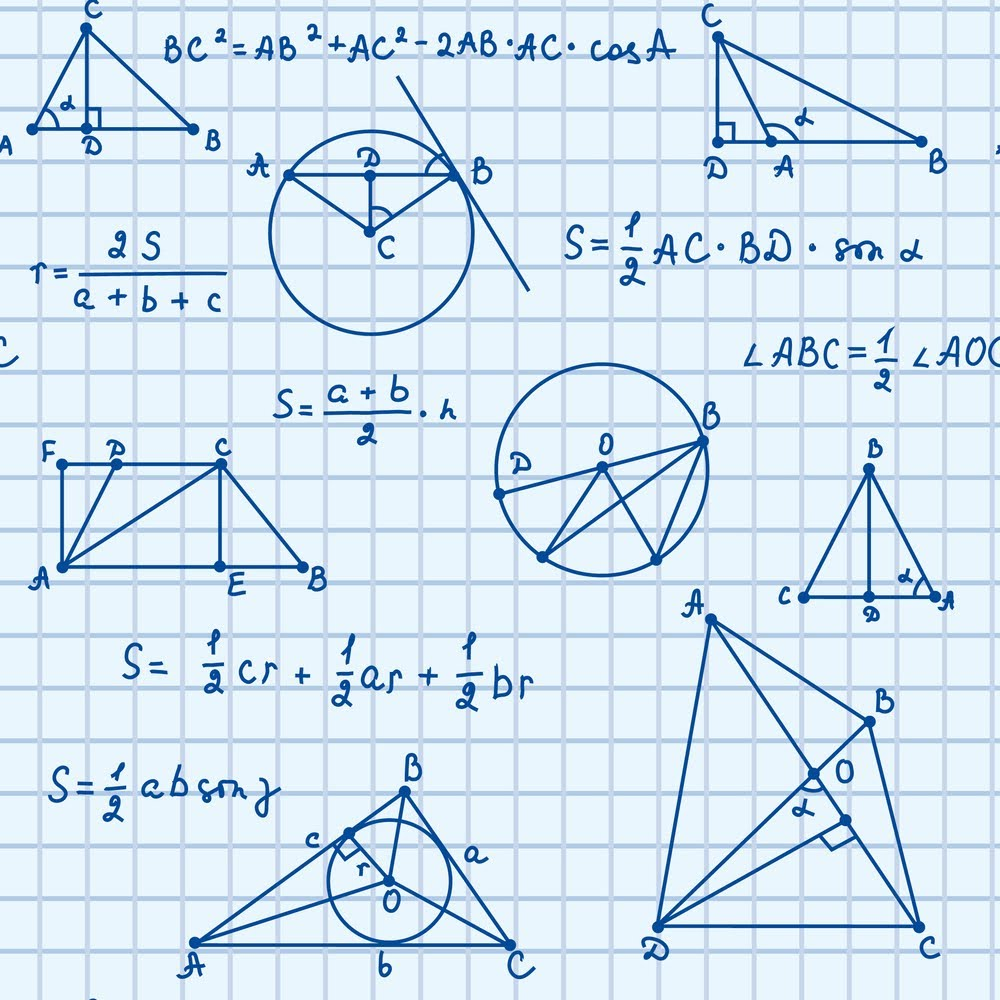 C
BC² = AB² + AC² - 2AB · AC · cos A
C
α
A
D
B
α
D
A
B
A
D
B
C
r = 2S / (a + b + c)
S = 1/2 AC · BD · son α
C
∠ABC = 1/2 ∠AOC
S = (a + b)/2 · h
F
D
C
A
E
B
D
O
B
B
C
D
α
A
S = 1/2 cr + 1/2 ar + 1/2 br
A
B
O
α
D
C
S = 1/2 ab son γ
B
c
a
r
O
A
b
C